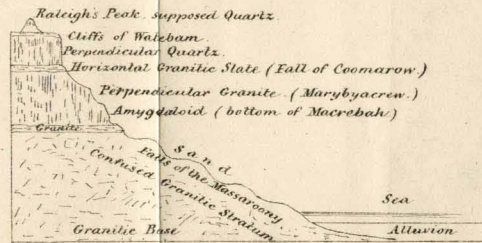 Raleigh's Peak supposed Quartz.
Cliffs of Watebam.
Perpendicular Quartz.
Horizontal Granitic Slate (Fall of Coomarow.)
Perpendicular Granite (Marybyacrew.)
Amygdaloid (bottom of Macrebah)
Granite
Sand
Falls of the Massaroony
Confused Granitic Stratum
Sea
Granitic Base
Alluvion